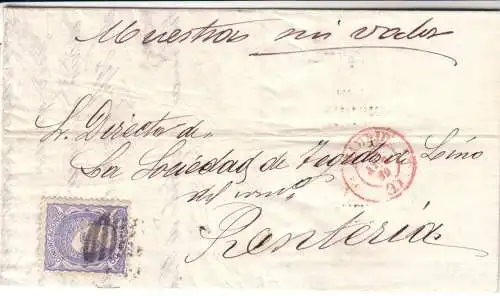 Muestras sin valor
Sr. Director de
La Sociedad de Tegidos de Lino
del
Rentería